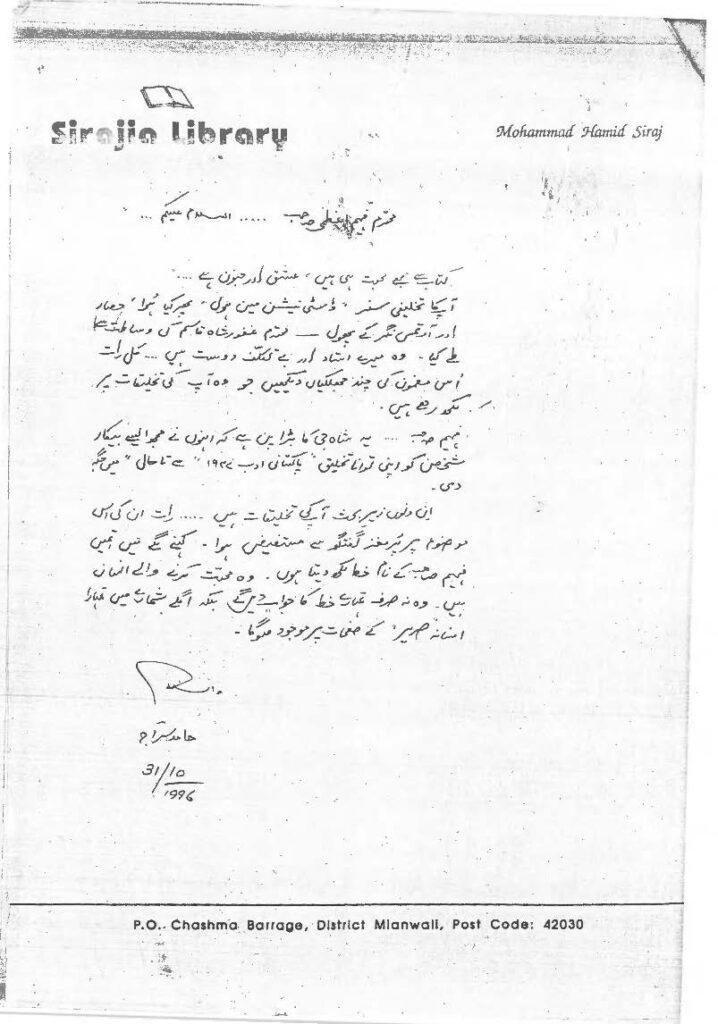 Sirajia Library
Mohammad Hamid Siraj
محترم فہیم اعظمی صاحب ..... السلام علیکم ...
کتاب سے مجھے محبت ہی نہیں، عشق اور جنون ہے ....
آپ کا تخلیقی سفر "ڈسٹی نیشن مین ہول"
اور آرٹمس نگر کے پھول — محترم غفور شاہ قاسم کی وساطت سے
طے کیا۔ وہ میرے استاد اور بے تکلف دوست ہیں .... کل رات
اُس مضمون کی چند جھلکیاں دیکھیں جو وہ آپ کی تخلیقات پر
لکھ رہے ہیں۔
فہیم صاحب .... یہ شاہ جی کا بڑا پن ہے کہ انہوں نے مجھ ایسے بیکار
شخص کو اپنی توانا تخلیق "پاکستانی ادب ۱۹۴۷ سے تا حال" میں جگہ
دی۔
ان دنوں زیرِ بحث آپ کی تخلیقات ہیں ..... رات ان کی اس
موضوع پر پُرمغز گفتگو سے مستفیض ہوا۔ کہنے لگے میں تمہیں
فہیم صاحب کے نام خط لکھ دیتا ہوں۔ وہ محبت کرنے والے انسان
ہیں۔ وہ نہ صرف تمہارے خط کا جواب دیں گے بلکہ اگلے شمارے میں تمہارا
افسانہ صریر کے صفحات پر موجود ہوگا۔
والسلام
حامد سراج
31/10
1996
P.O. Chashma Barrage, District Mianwali, Post Code: 42030